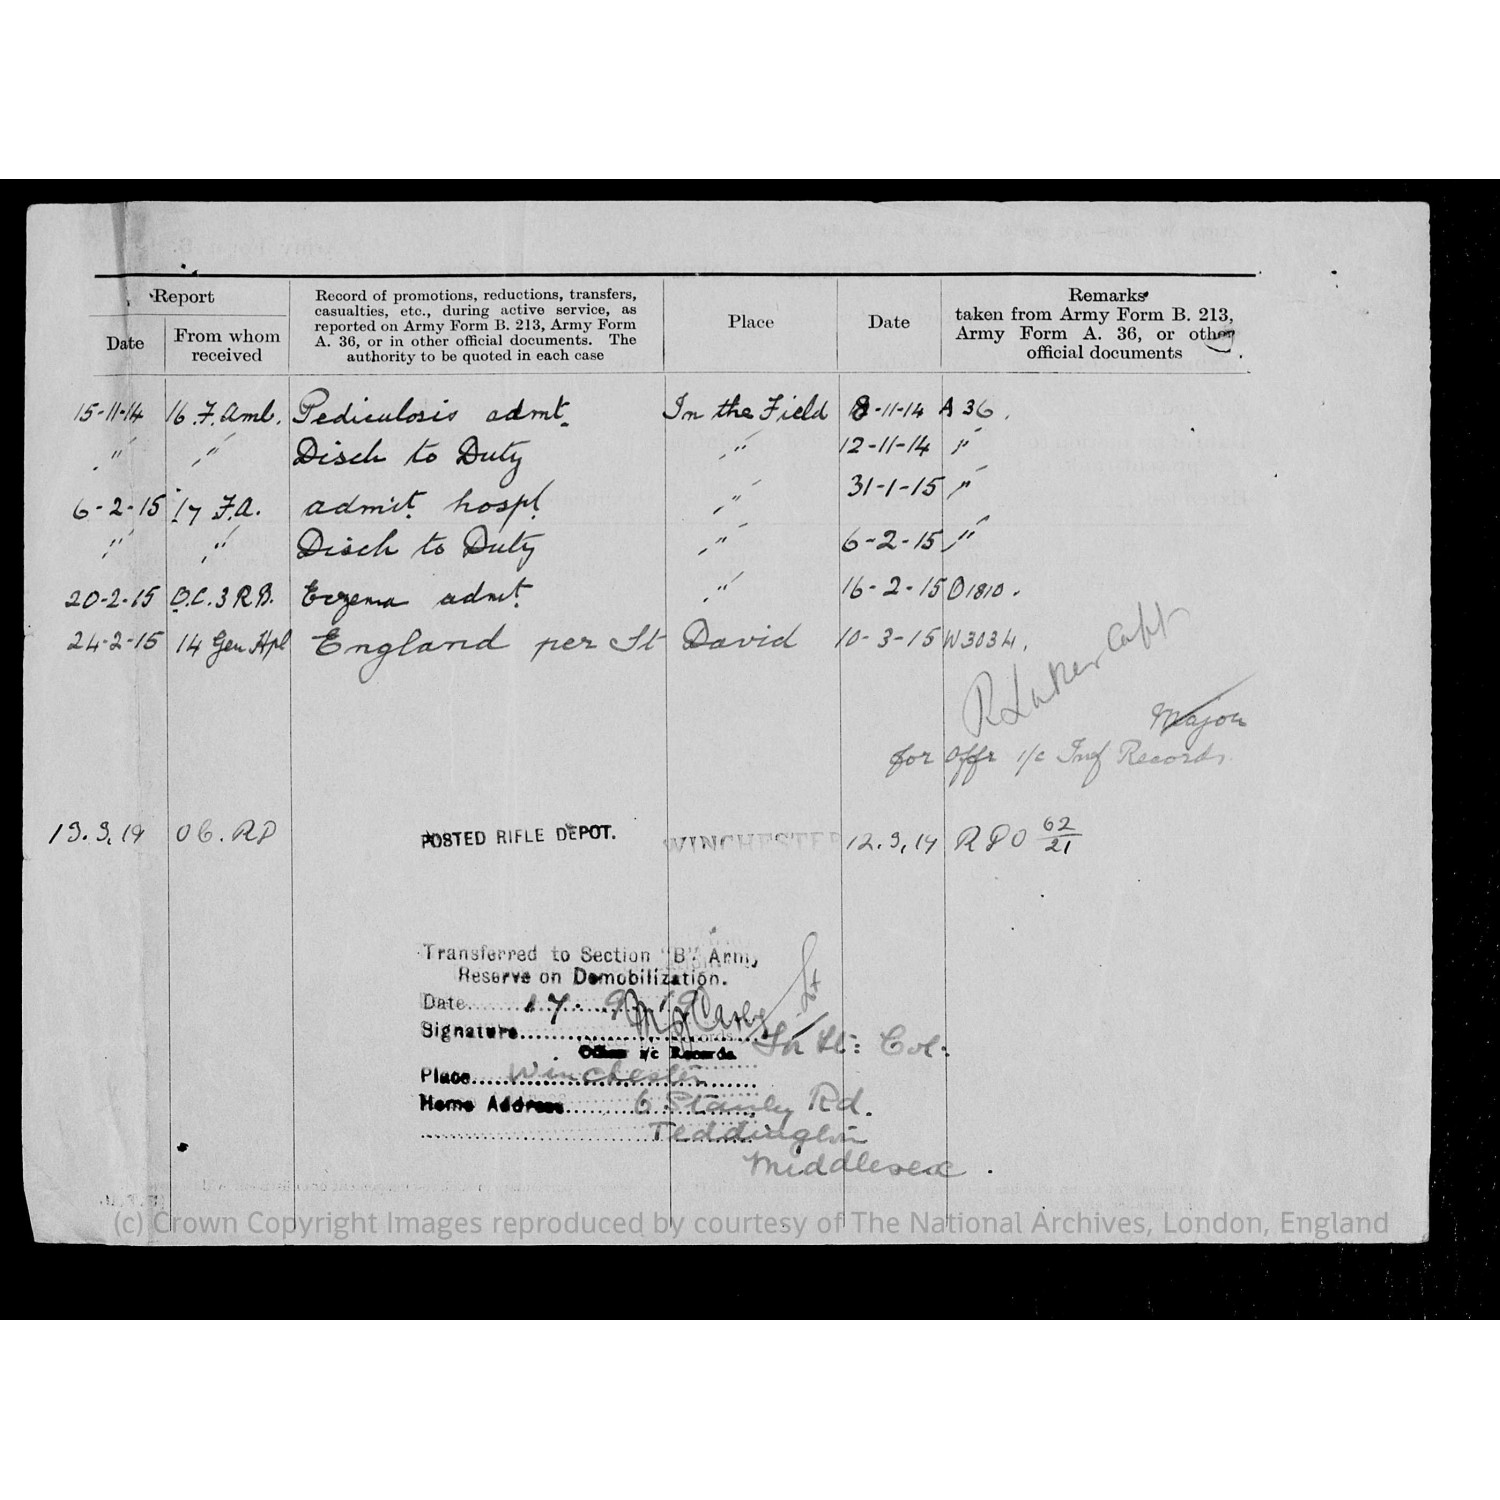 Report
Record of promotions, reductions, transfers,
casualties, etc., during active service, as
reported on Army Form B. 213, Army Form
A. 36, or in other official documents. The
authority to be quoted in each case
Place
Date
Remarks
taken from Army Form B. 213,
Army Form A. 36, or other
official documents
Date
From whom
received
15-11-14 16 F. Amb. Pediculosis admt. In the Field 8-11-14 A 36.
" " Disch to Duty " 12-11-14 "
6-2-15 17 F.A. admit. hospl " 31-1-15 "
" " Disch to Duty " 6-2-15 "
20-2-15 O.C. 3 R.B. Eczema admt. " 16-2-15 D1810.
24-2-15 14 Gen Hpl England per St David 10-3-15 W3034.
Capt
Major
for Offr i/c Inf Records
OC. RD POSTED RIFLE DEPOT. WINCHESTER RDO 62/21
Transferred to Section "B". Army
Reserve on Demobilization.
Date 17. 9. 19
Signature
Lt
for Lt: Col:
Officer i/c Records.
Place Winchester
Home Address 6 Stanley Rd.
Teddington
Middlesex.
(c) Crown Copyright Images reproduced by courtesy of The National Archives, London, England